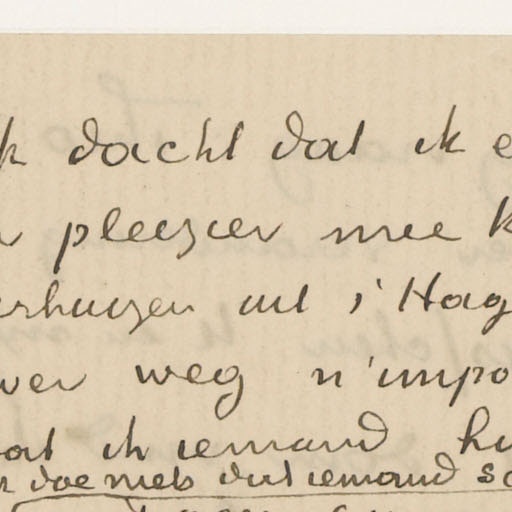 k dacht dat ik e
n pleezier mee k
erhuizen uit s'Hag
ver weg n'impo
at ik iemand hi
k doe niets dat iemand sc